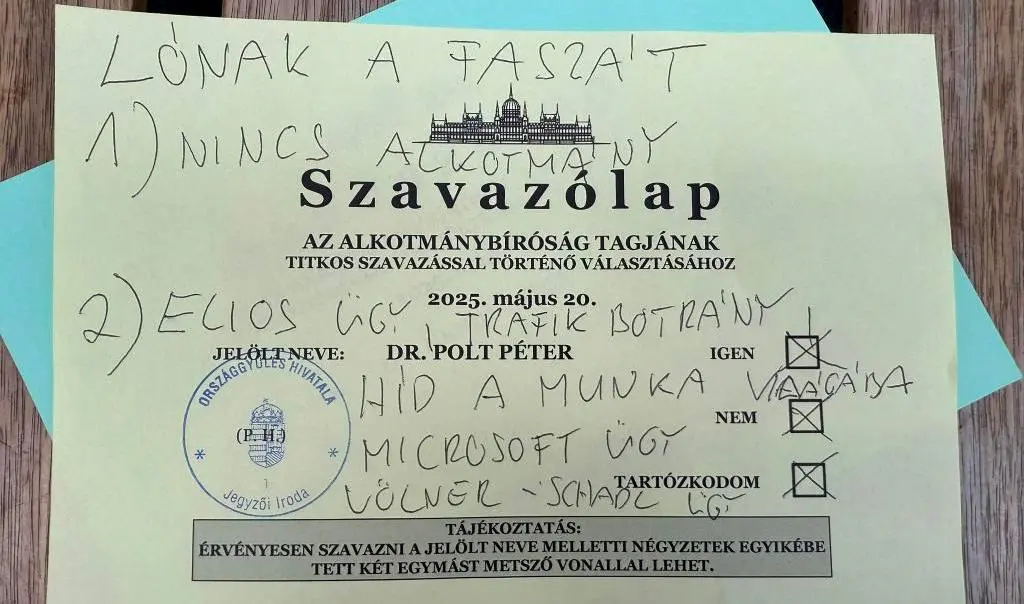 LÓNAK A FASZÁT
1) NINCS ALKOTMÁNY
Szavazólap
AZ ALKOTMÁNYBÍRÓSÁG TAGJÁNAK
TITKOS SZAVAZÁSSAL TÖRTÉNŐ VÁLASZTÁSÁHOZ
2025. május 20.
2) ELIOS ÜGY, TRAFIK BOTRÁNY,
JELÖLT NEVE: DR. POLT PÉTER IGEN
HÍD A MUNKA VILÁGÁBA
NEM
MICROSOFT ÜGY
TARTÓZKODOM
VÖLNER - SCHADL ÜGY
ORSZÁGGYŰLÉS HIVATALA
(P. H.)
1
Jegyzői Iroda
TÁJÉKOZTATÁS:
ÉRVÉNYESEN SZAVAZNI A JELÖLT NEVE MELLETTI NÉGYZETEK EGYIKÉBE
TETT KÉT EGYMÁST METSZŐ VONALLAL LEHET.